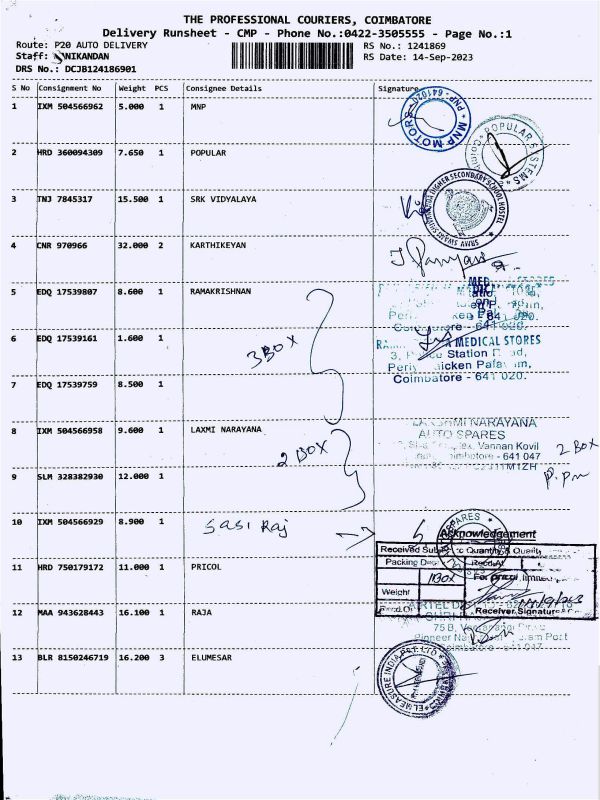 THE PROFESSIONAL COURIERS, COIMBATORE
Delivery Runsheet - CMP - Phone No.:0422-3505555 - Page No.:1
Route: P20 AUTO DELIVERY RS No.: 1241869
Staff: NIKANDAN RS Date: 14-Sep-2023
DRS No.: DCJB124186901
S No Consignment No Weight PCS Consignee Details Signature
1 IXM 504566962 5.000 1 MNP
MNP MOTORS
PNP - 641020
2 HRD 360094309 7.650 1 POPULAR
POPULAR SYSTEMS
3 TNJ 7845317 15.500 1 SRK VIDYALAYA
HIGHER SECONDARY SCHOOL HOSTEL
4 CNR 970966 32.000 2 KARTHIKEYAN
5 EDQ 17539807 8.600 1 RAMAKRISHNAN
Coimbatore - 641 020.
6 EDQ 17539161 1.600 1
3 BOX
MEDICAL STORES
3, Station
Coimbatore - 641 020.
7 EDQ 17539759 8.500 1
8 IXM 504566958 9.600 1 LAXMI NARAYANA
LAKSHMI NARAYANA
AUTO SPARES
Vannan Kovil
Coimbatore - 641 047
2 BOX
2 BOX
9 SLM 328382930 12.000 1
10 IXM 504566929 8.900 1
Sasi Raj
Acknowledgement
11 HRD 750179172 11.000 1 PRICOL
Received Quantity & Quality
Packing Recd.At
1BOX
Weight
Receiver Signature
12 MAA 943628443 16.100 1 RAJA
75 B,
13 BLR 8150246719 16.200 3 ELUMESAR
ELMEASURE INDIA PVT. LTD